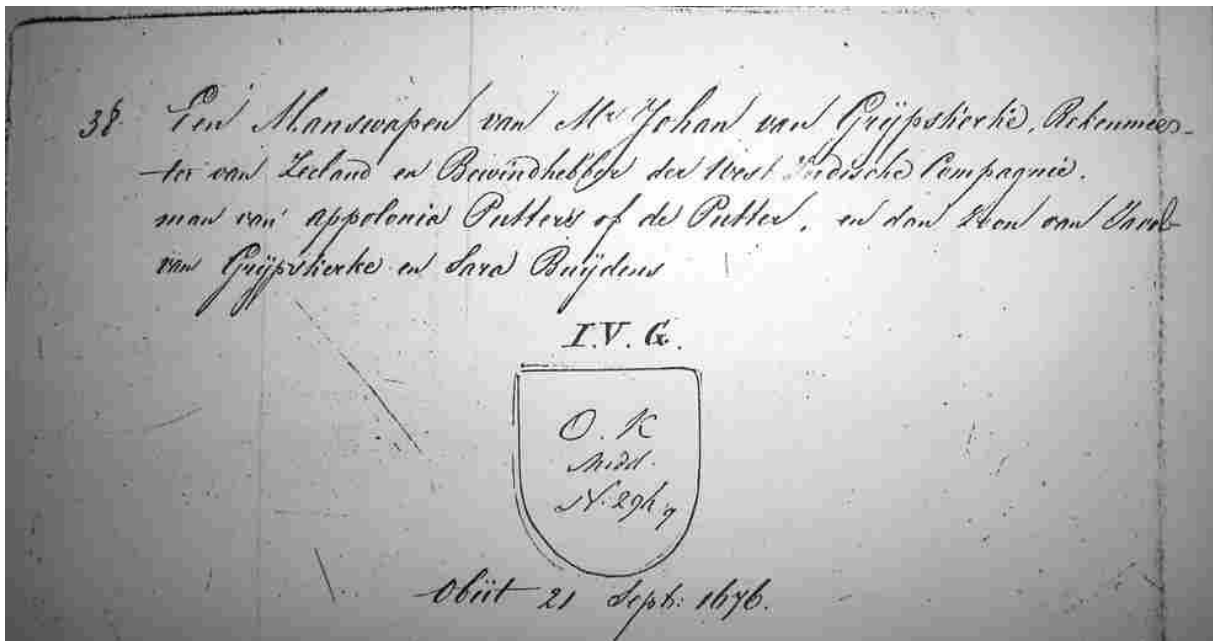 38. Een Manswapen van Mr Johan van Grijpskerke, Rekenmees-
ter van Zeeland en Bewindhebber der West Indische Compagnie.
man van appolonia Putters of de Putter, en dan Zoon van Jacob
van Grijpskerke en Sara Buijdens
I.V.G.
O. K
Midd.
N. 29h
Obiit 21 Sept: 1676.